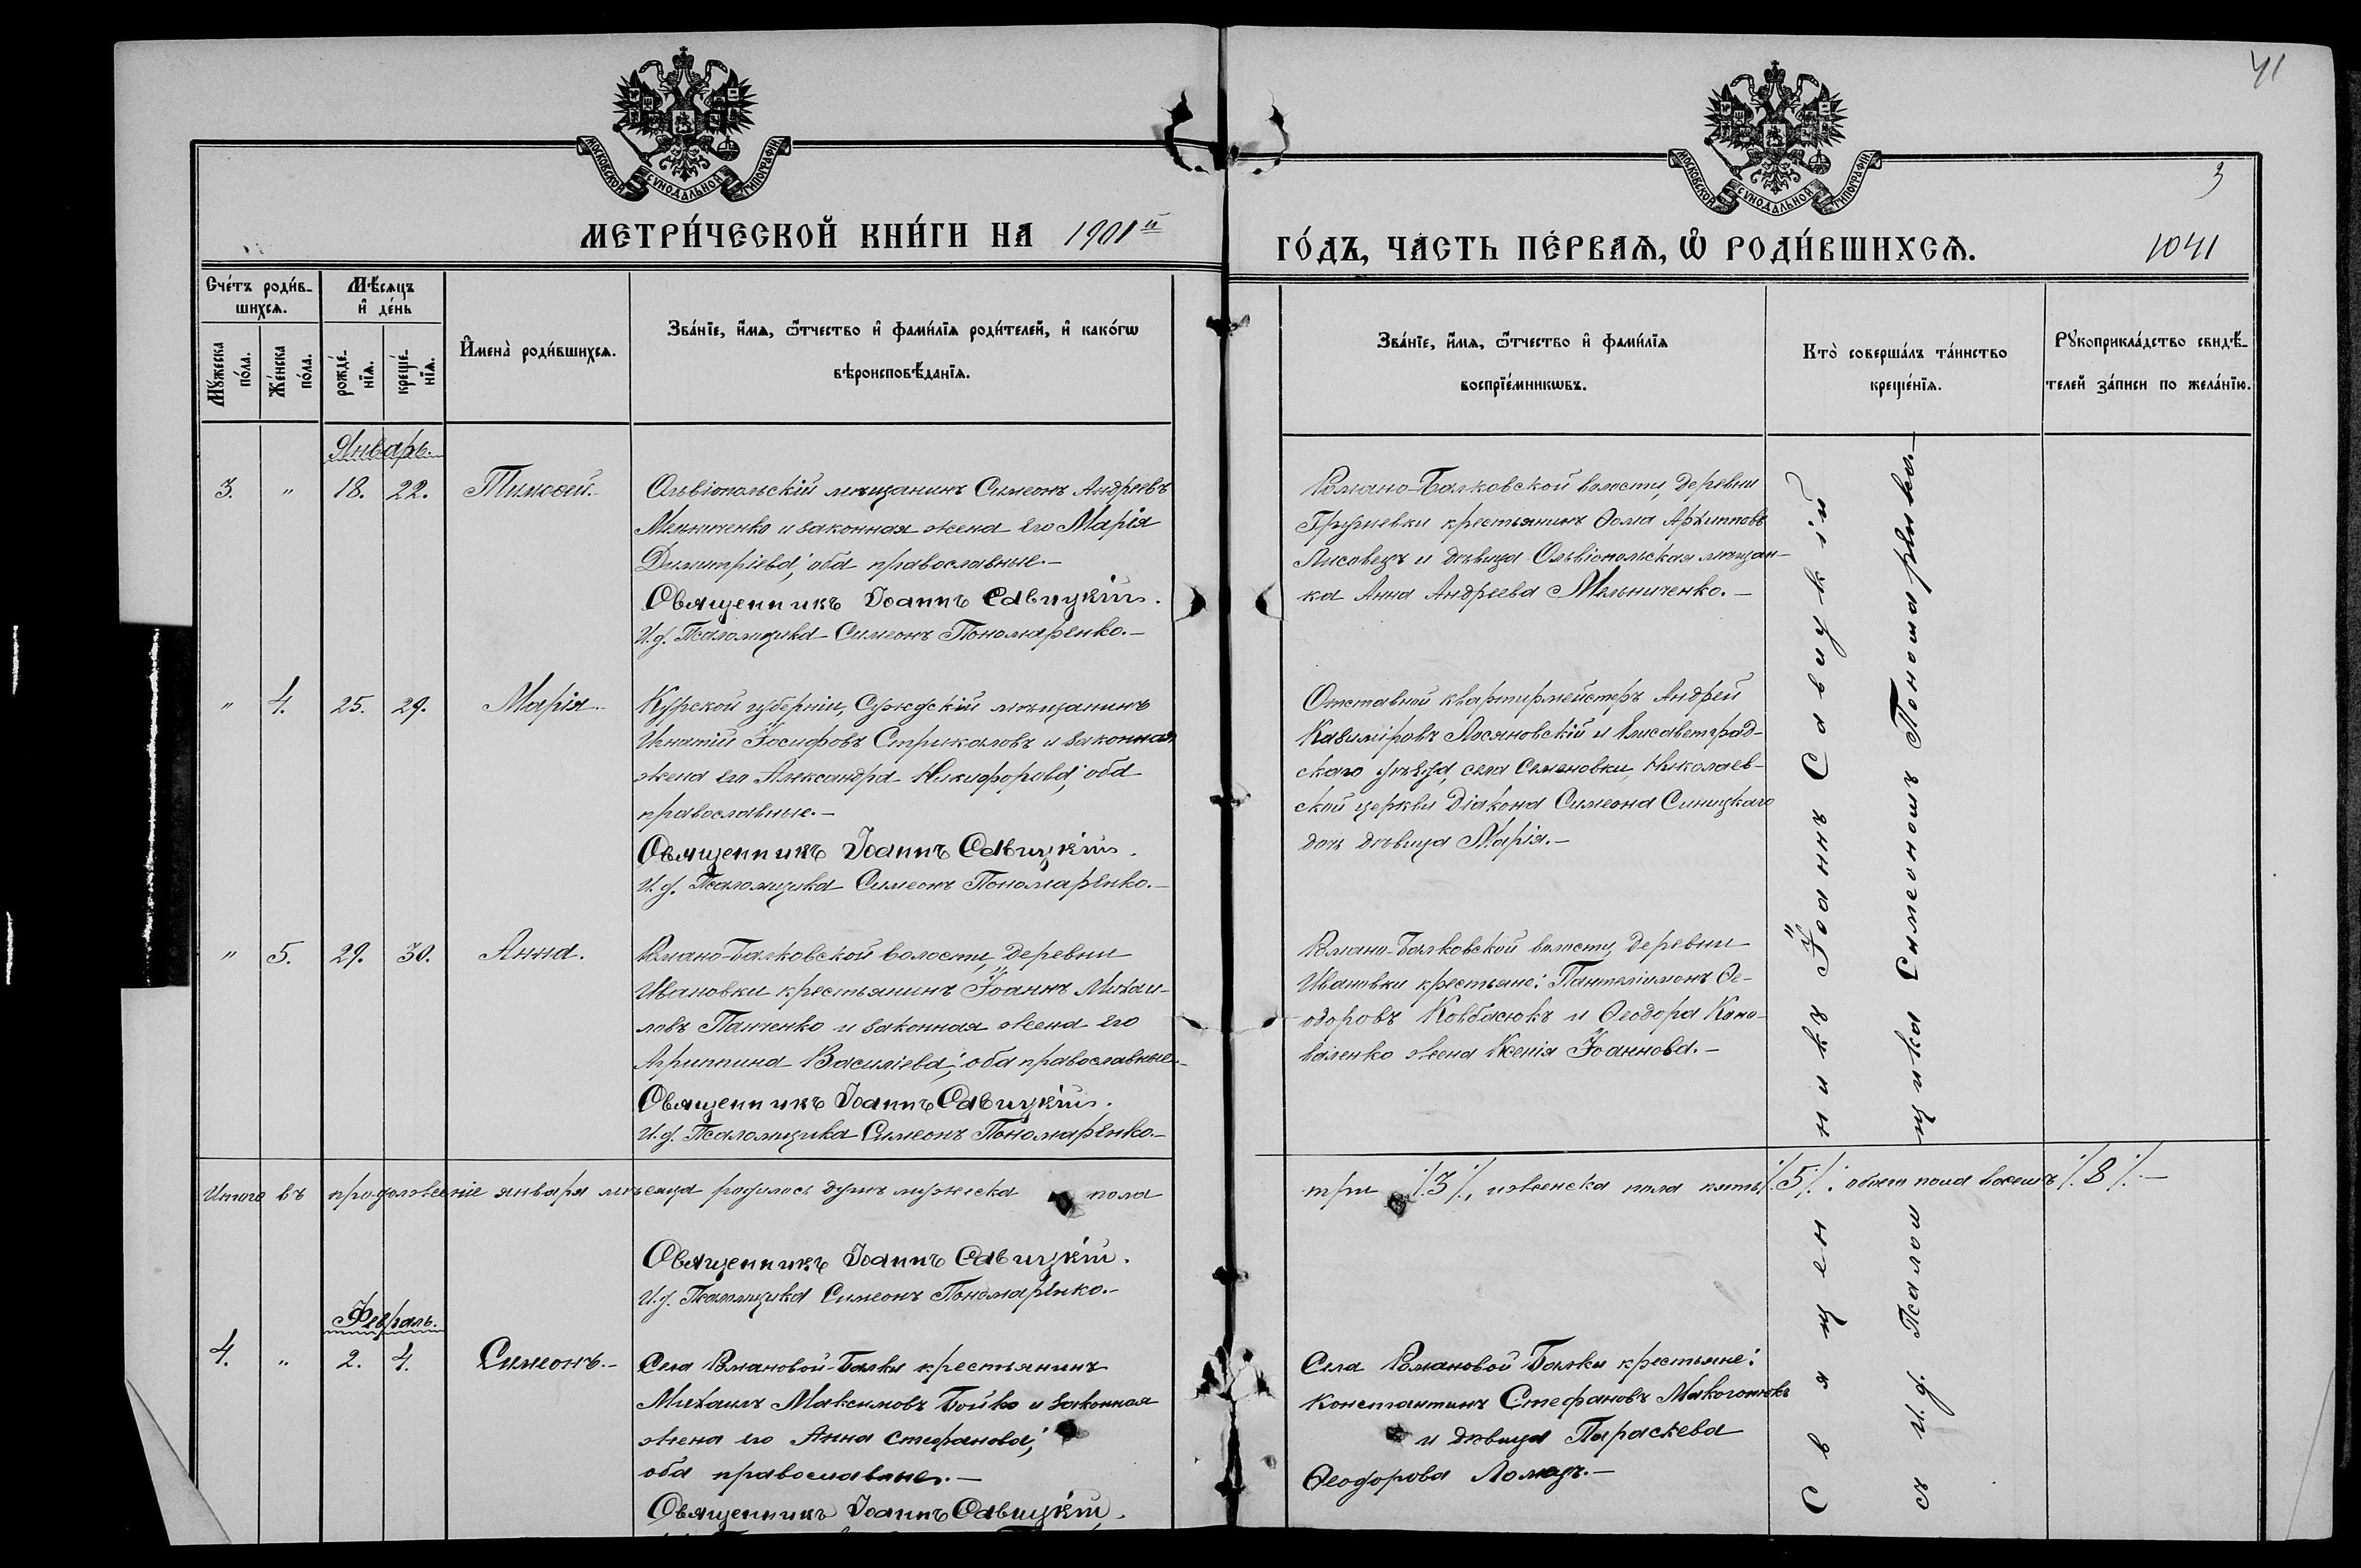 41
МОСКОВСКОЙ СѴНОДАЛЬНОЙ ТИПОГРАФІИ.
МОСКОВСКОЙ СѴНОДАЛЬНОЙ ТИПОГРАФІИ.
3
МЕТРИ́ЧЕСКОЙ КНИ́ГИ НА 1901й
ГО́ДЪ, ЧА́СТЬ ПЕ́РВАѦ, Ѽ РОДИ́ВШИХСѦ.
1041
Сче́тъ роди́в-
шихсѧ.
Мꙋ́жеска
по́ла.
Же́нска
по́ла.
Мѣ́сѧцъ
и҆ де́нь
рожде́-
нїѧ.
креще́-
нїѧ.
И҆мена̀ роди́вшихсѧ.
Зва́нїе, и҆́мѧ, ѻ҆́тчество и҆ фами́лїѧ роди́телей, и҆ како́гѡ
вѣроисповѣ́данїѧ.
Зва́нїе, и҆́мѧ, ѻ҆́тчество и҆ фами́лїѧ
воспрїе́мникѡвъ.
Кто̀ соверша́лъ та́инство
креще́нїѧ.
Рꙋкоприкла́дство свидѣ́-
телей за́писи по жела́нїю.
Январь.
3. " 18. 22. Тимоѳей.
Ольвіопольскій мѣщанинъ Симеонъ Андреевъ
Мельниченко и законная жена его Марія
Димитріева; оба православные.-
Священникъ Іоаннъ Савицкій.
И.д. Псаломщика Симеонъ Пономаренко.-
Романо-Балковской волости, деревни
Грушевки крестьянинъ Ѳома Архипповъ
Лисовецъ и дѣвица Ольвіопольская мѣщан-
ка Анна Андреева Мельниченко.-
" 4. 25. 29. Марія.
Курской губерніи, Суждскій мѣщанинъ
Игнатій Іосифовъ Стрикаловъ и законная
жена его Александра Никифорова; оба
православные.-
Священникъ Іоаннъ Савицкій.
И.д. Псаломщика Симеонъ Пономаренко.-
Отставной квартирмейстеръ Андрей
Казиміровъ Лосяновскій и Елисаветград-
скаго уѣзда, села Семеновки, Николаев-
ской церкви Діакона Симеона Синицкаго
дочь дѣвица Марія.-
" 5. 29. 30. Анна.
Романо-Балковской волости, деревни
Ивановки крестьянинъ Іоаннъ Михаи-
ловъ Панченко и законная жена его
Агриппина Василіева; оба православные.-
Священникъ Іоаннъ Савицкій.
И.д. Псаломщика Симеонъ Пономаренко.-
Романо-Балковской волости, деревни
Ивановки крестьяне: Пантелеимонъ Ѳе-
одоровъ Ковбасюкъ и Ѳеодора Коно-
валенко жена Ксенія Іоаннова.-
Итого въ продолженіе января мѣсяца родилось душъ мужеска пола
три ./.3./., женска пола пять ./.5./.: обоего пола восемь ./.8./.-
Священникъ Іоаннъ Савицкій.
И.д. Псаломщика Симеонъ Пономаренко.-
Февраль.
4. " 2. 4. Симеонъ.-
Села Романовой-Балки крестьянинъ
Михаилъ Максимовъ Бойко и законная
жена его Анна Стефанова;
оба православные.-
Священникъ Іоаннъ Савицкій.
Села Романовой Балки крестьяне:
Константинъ Стефановъ Макогонюкъ
и дѣвица Параскева
Ѳеодорова Ломазъ.-
Священникъ Іоаннъ Савицкій
съ и.д. Псаломщика Симеономъ Пономаренко.-